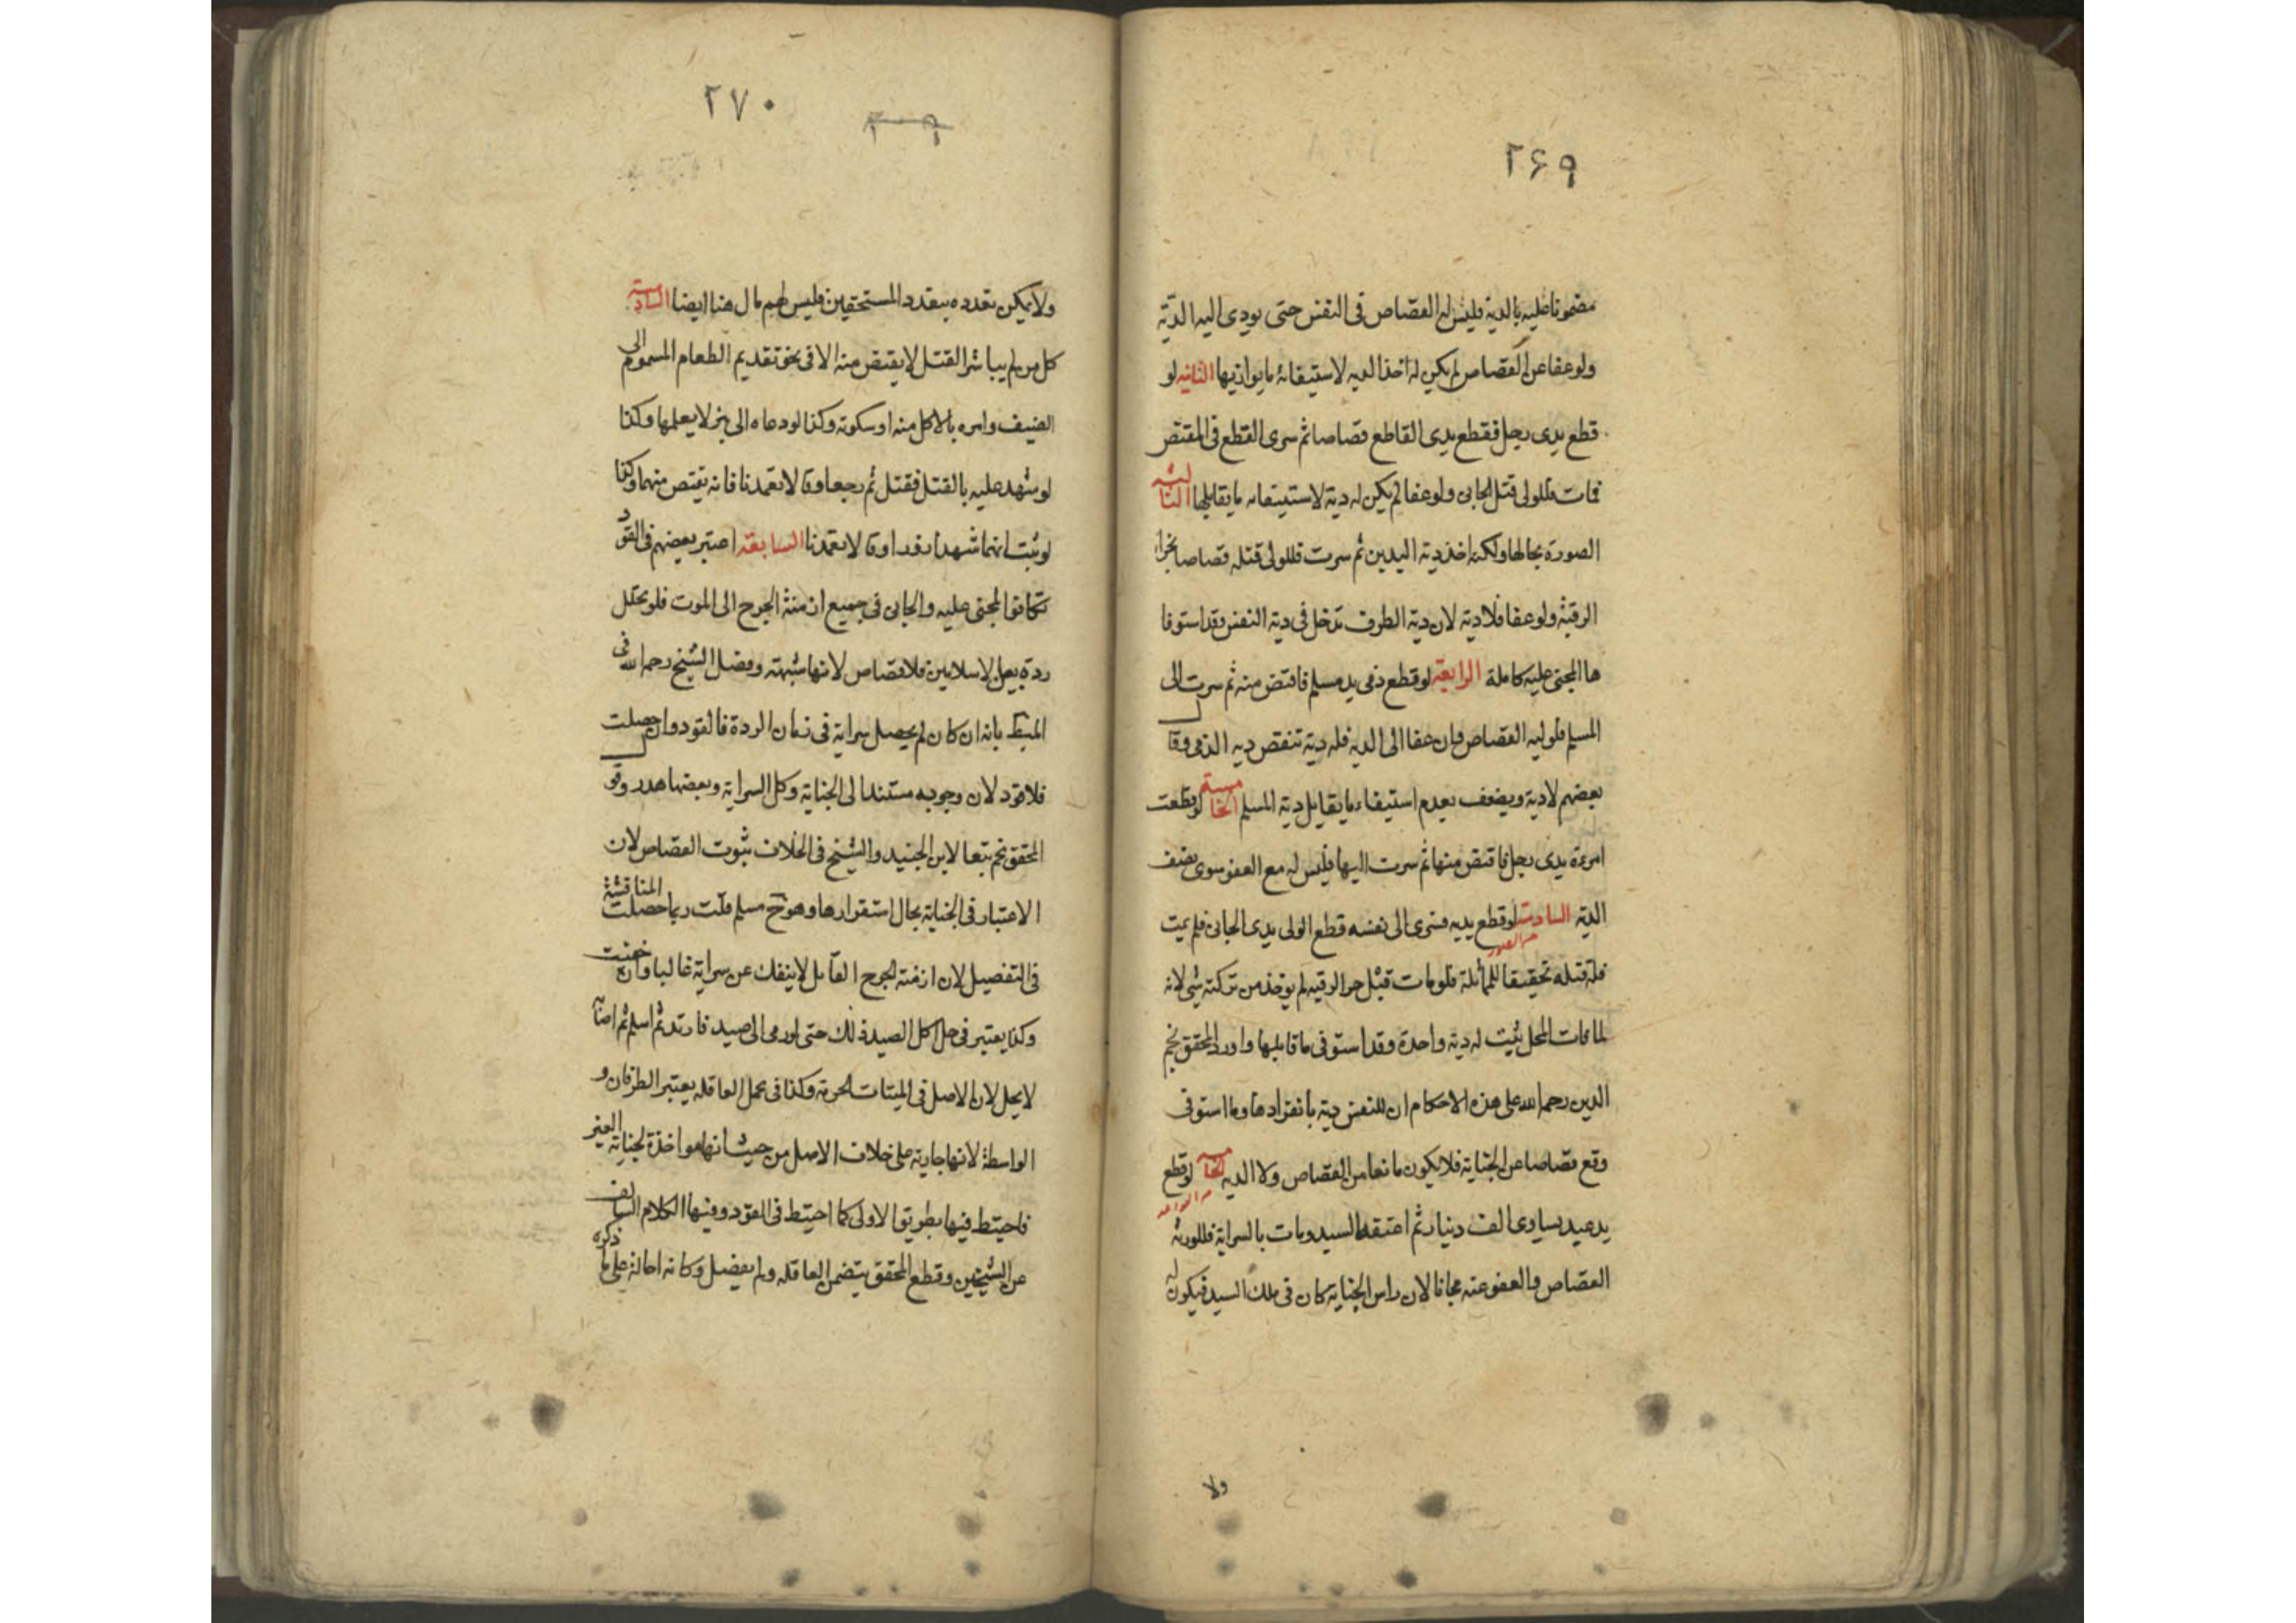 ۲۶۹
مضمونا عليه بالدية فليس له القصاص فى النفس حتى يودى اليه الدية
ولو عفا عن القصاص لم يكن له اخذ الديه لاستيفائه ما يوازيها الثانيه لو
قطع يدى رجل فقطع يدى القاطع قصاصا ثم سرى القطع فى المقتص
فمات فللولى قتل الجانى ولو عفا لم يكن له دية لاستيفائه ما يقابلها الثالثة
الصورة بحالها ولكنه اخذ دية اليدين ثم سرت فللولى قتله قصاصا بحز
الرقبة ولو عفا فلا دية لان دية الطرف تدخل فى دية النفس وقد استوفا
ها المجنى عليه كاملة الرابعة لو قطع ذمى يد مسلم فاقتص منه ثم سرت الى
المسلم فلوليه القصاص فان عفا الى الدية فله دية تنقص ديه الذمى وقا ل
بعضهم لا دية ويضعف بعدم استيفاء ما يقابل دية المسلم الخامسة لو قطعت
امرءة يدى رجل فاقتص منها ثم سرت اليها فليس له مع العفو سوى نصف
الدية السادسة لو قطع يديه فسرى الى نفسه قطع الولى يدى الجانى فلم يمت
فله قتله تحقيقا للمماثلة فلو مات قبل حز الرقبه لم يوخذ من تركته شئ لانه
لما فات المحل ثبت له دية واحدة وقد استوفى ما قابلها واورد المحقق نجم
الدين رحمه الله على هذه الاحكام ان للنفس دية بانفرادها وما استوفى
وقع قصاصا عن الجناية فلا يكون مانعا من القصاص ولا الديه الخامسة لو قطع
يد عبد يساوى الف دينار ثم اعتقه السيد ومات بالسراية فللورثه
القصاص والعفو عنه مجانا لان راس الجناية كان فى ملك السيد فيكون له
ولا
۲۷۰
ولا يمكن تعدده بتعدد المستحقين فليس لهم مال هنا ايضا السادسة
كل من لم يباشر القتل لا يقتص منه الا فى نحو تقديم الطعام المسموم الى
الضيف وامره بالاكل منه او سكوته وكذا لو دعاه الى بئر لا يعلمها وكذا
لو شهد عليه بالقتل فقتل ثم رجعا وقالا تعمدنا فانه يقتص منهما وكذا
لو ثبت انهما شهدا زورا وقالا تعمدنا السابعة اعتبر بعضهم فى القود
تكافؤ المجنى عليه والجانى فى جميع ازمنة الجرح الى الموت فلو تخلل
ردة بين الاسلامين فلا قصاص لانها شبهة وفصل الشيخ رحمه الله فى
المبسط بانه ان كان لم يحصل سراية فى زمان الردة فالقود وان حصلت
فلا قود لان وجوبه مستند الى الجناية وكل السراية وبعضها هدر وقو ل
المحقق نجم تبعا لابن الجنيد والشيخ فى الخلاف ثبوت القصاص لان
الاعتبار فى الجناية بحال استقرارها وهو ح مسلم قلت ربما حصلت المناقشة
فى التفصيل لان ازمنة الجرح القاتل لا ينفك عن سراية غالبا وان خفيت
وكذا يعتبر فى حل اكل الصيد ذلك حتى لو رمى الى صيد فارتد ثم اسلم ثم اصابه
لا يحل لان الاصل فى الميتات الحرمة وكذا فى تحمل العاقله يعتبر الطرفان و
الواسطة لانها جارية على خلاف الاصل من حيث انها مواخذة لجناية الغير
فاحيتط فيها بطريق الاولى كما احيتط فى القود وفيها الكلام السالف
عن الشيخين وقطع المحقق بتضمن العاقله ولم يفصل وكانه احاله على ما ذكره